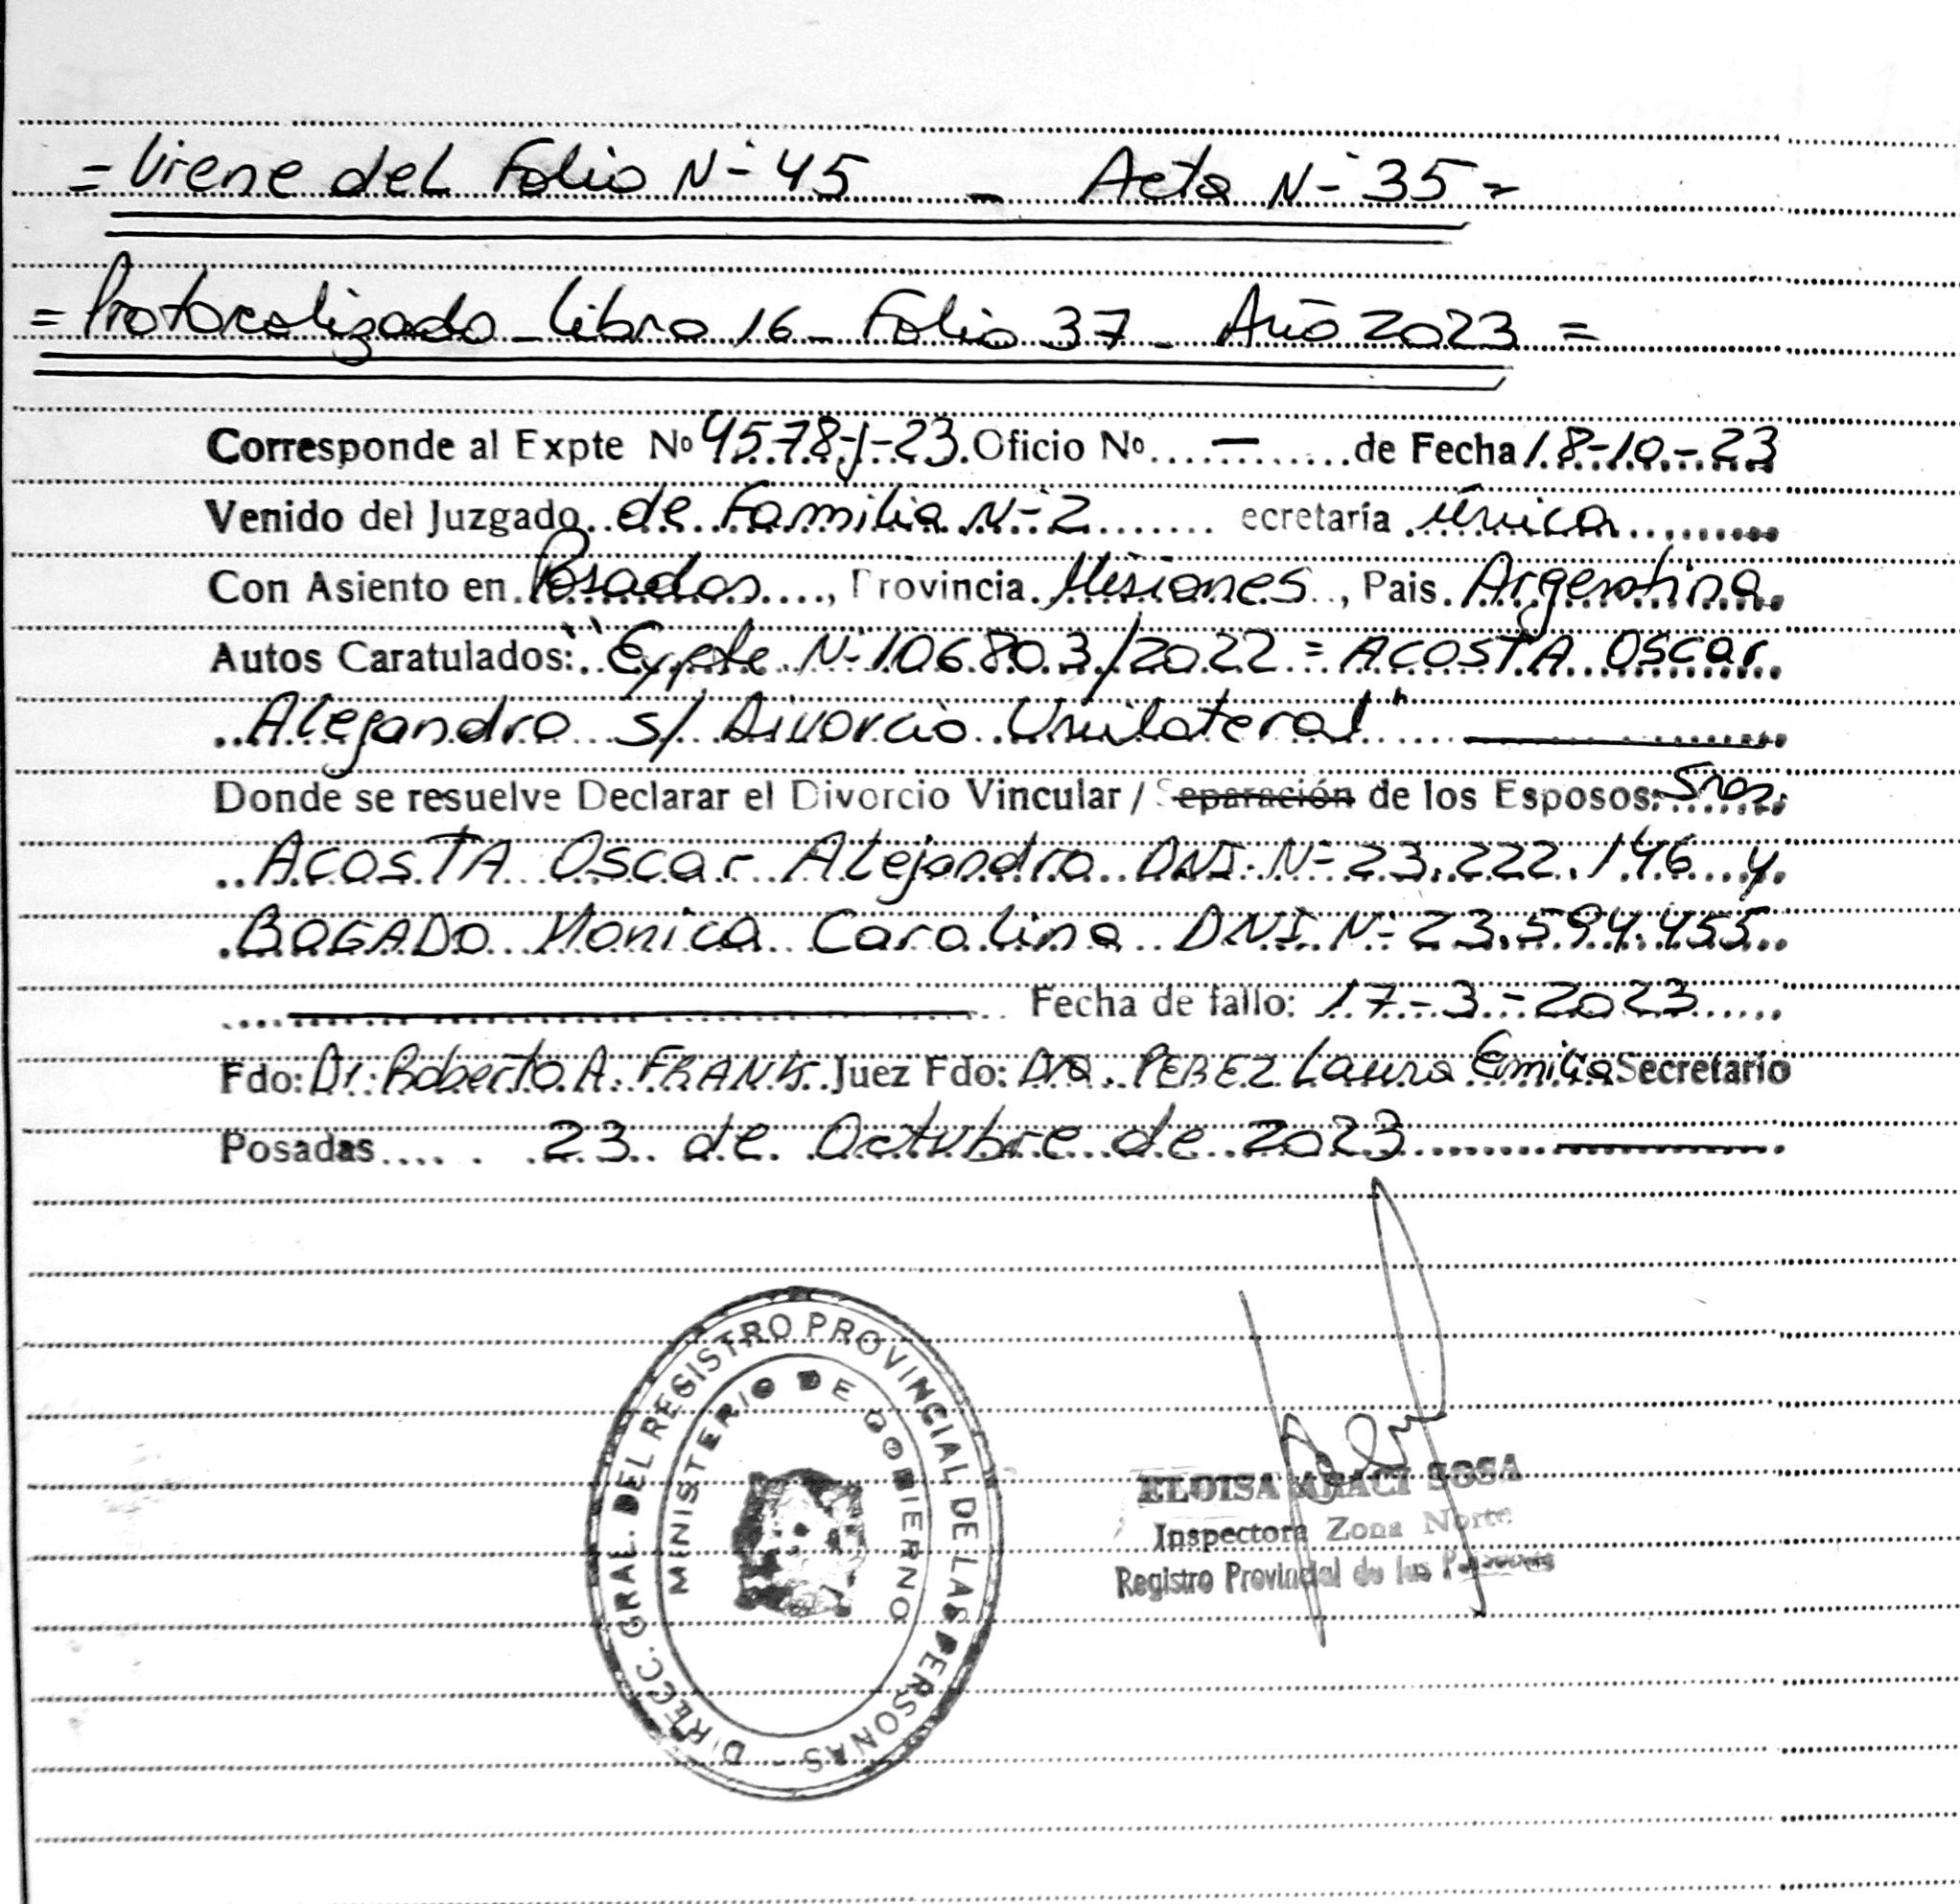 = Viene del Folio N° 45 - Acta N° 35 =
= Protocolizado - Libro 16 - Folio 37 - Año 2023 =
Corresponde al Expte Nº 4578-J-23. Oficio Nº.....—.....de Fecha 18-10-23
Venido del Juzgado de Familia N° 2 ....... ecretaría única
Con Asiento en Posadas...., Provincia Misiones.., Pais. Argentina
Autos Caratulados: "Expte N° 106803/2022 = ACOSTA Oscar
Alejandro s/ Divorcio Unilateral"
Donde se resuelve Declarar el Divorcio Vincular / Separación de los Esposos: Sres
ACOSTA Oscar Alejandro DNI N° 23.222.146 y
BOGADO Monica Carolina DNI N° 23.594.455
Fecha de fallo: 17-3-2023
Fdo: Dr. Roberto A. FRANK Juez Fdo: Dra. PEREZ Laura Emilia Secretario
Posadas.... 23 de Octubre de 2023
DIRECC. GRAL. DEL REGISTRO PROVINCIAL DE LAS PERSONAS -
MINISTERIO DE GOBIERNO
ELOISA ARACI SOSA
Inspectora Zona Norte
Registro Provincial de las Personas